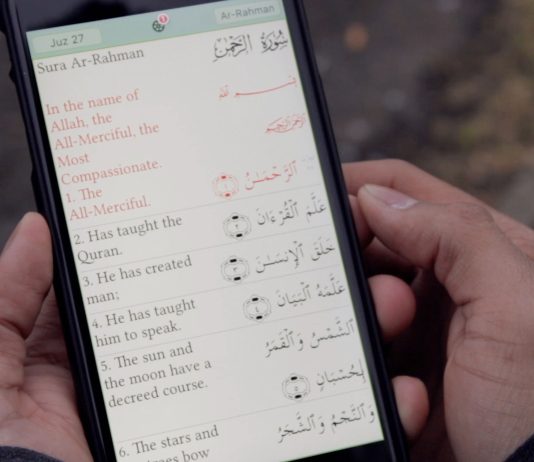 Juz 27
1
Ar-Rahman
Sura Ar-Rahman
سُورَةُ الرَّحْمَٰن
In the name of
Allah, the
All-Merciful, the
Most
Compassionate.
بِسْمِ اللَّهِ
الرَّحْمَٰنِ الرَّحِيمِ
1. The
All-Merciful.
ٱلرَّحْمَـٰنُ ١
2. Has taught the
Quran.
عَلَّمَ ٱلْقُرْءَانَ ٢
3. He has created
man;
خَلَقَ ٱلْإِنسَـٰنَ ٣
4. He has taught
him to speak.
عَلَّمَهُ ٱلْبَيَانَ ٤
5. The sun and
the moon have a
decreed course.
ٱلشَّمْسُ وَٱلْقَمَرُ
بِحُسْبَانٍ ٥
6. The stars and
bow
وَٱلنَّجْمُ وَٱلشَّجَرُ